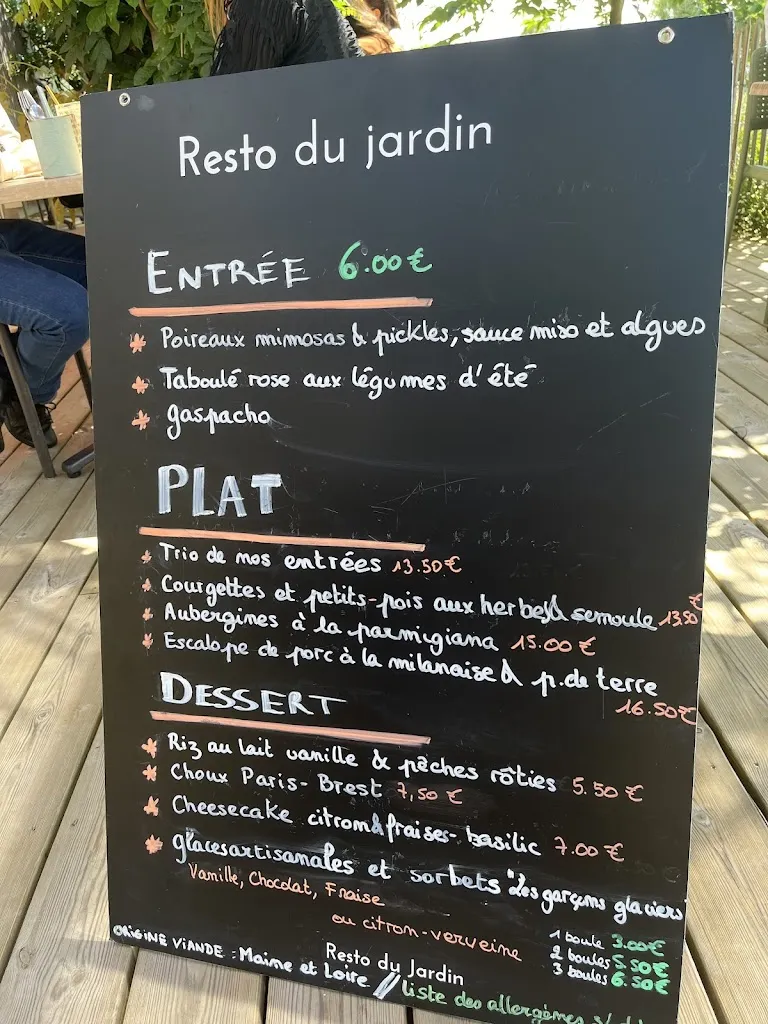 Resto du jardin
ENTRÉE 6.00€
Poireaux mimosas & pickles, sauce miso et algues
Taboulé rose aux légumes d'été
gaspacho
PLAT
Trio de nos entrées 13.50€
Courgettes et petits-pois aux herbes & semoule 13.50€
Aubergines à la parmigiana 15.00€
Escalope de porc à la milanaise & p.de terre
16.50€
DESSERT
Riz au lait vanille & pêches rôties 5.50€
Choux Paris-Brest 7,50€
Cheesecake citron & fraises-basilic 7.00€
glaces artisanales et sorbets "Les garçons glaciers
Vanille, Chocolat, Fraise
ou citron-verveine
1 boule 3.00€
2 boules 5.50€
3 boules 6.50€
ORIGINE VIANDE : Maine et Loire // liste des allergèmes
Resto du Jardin